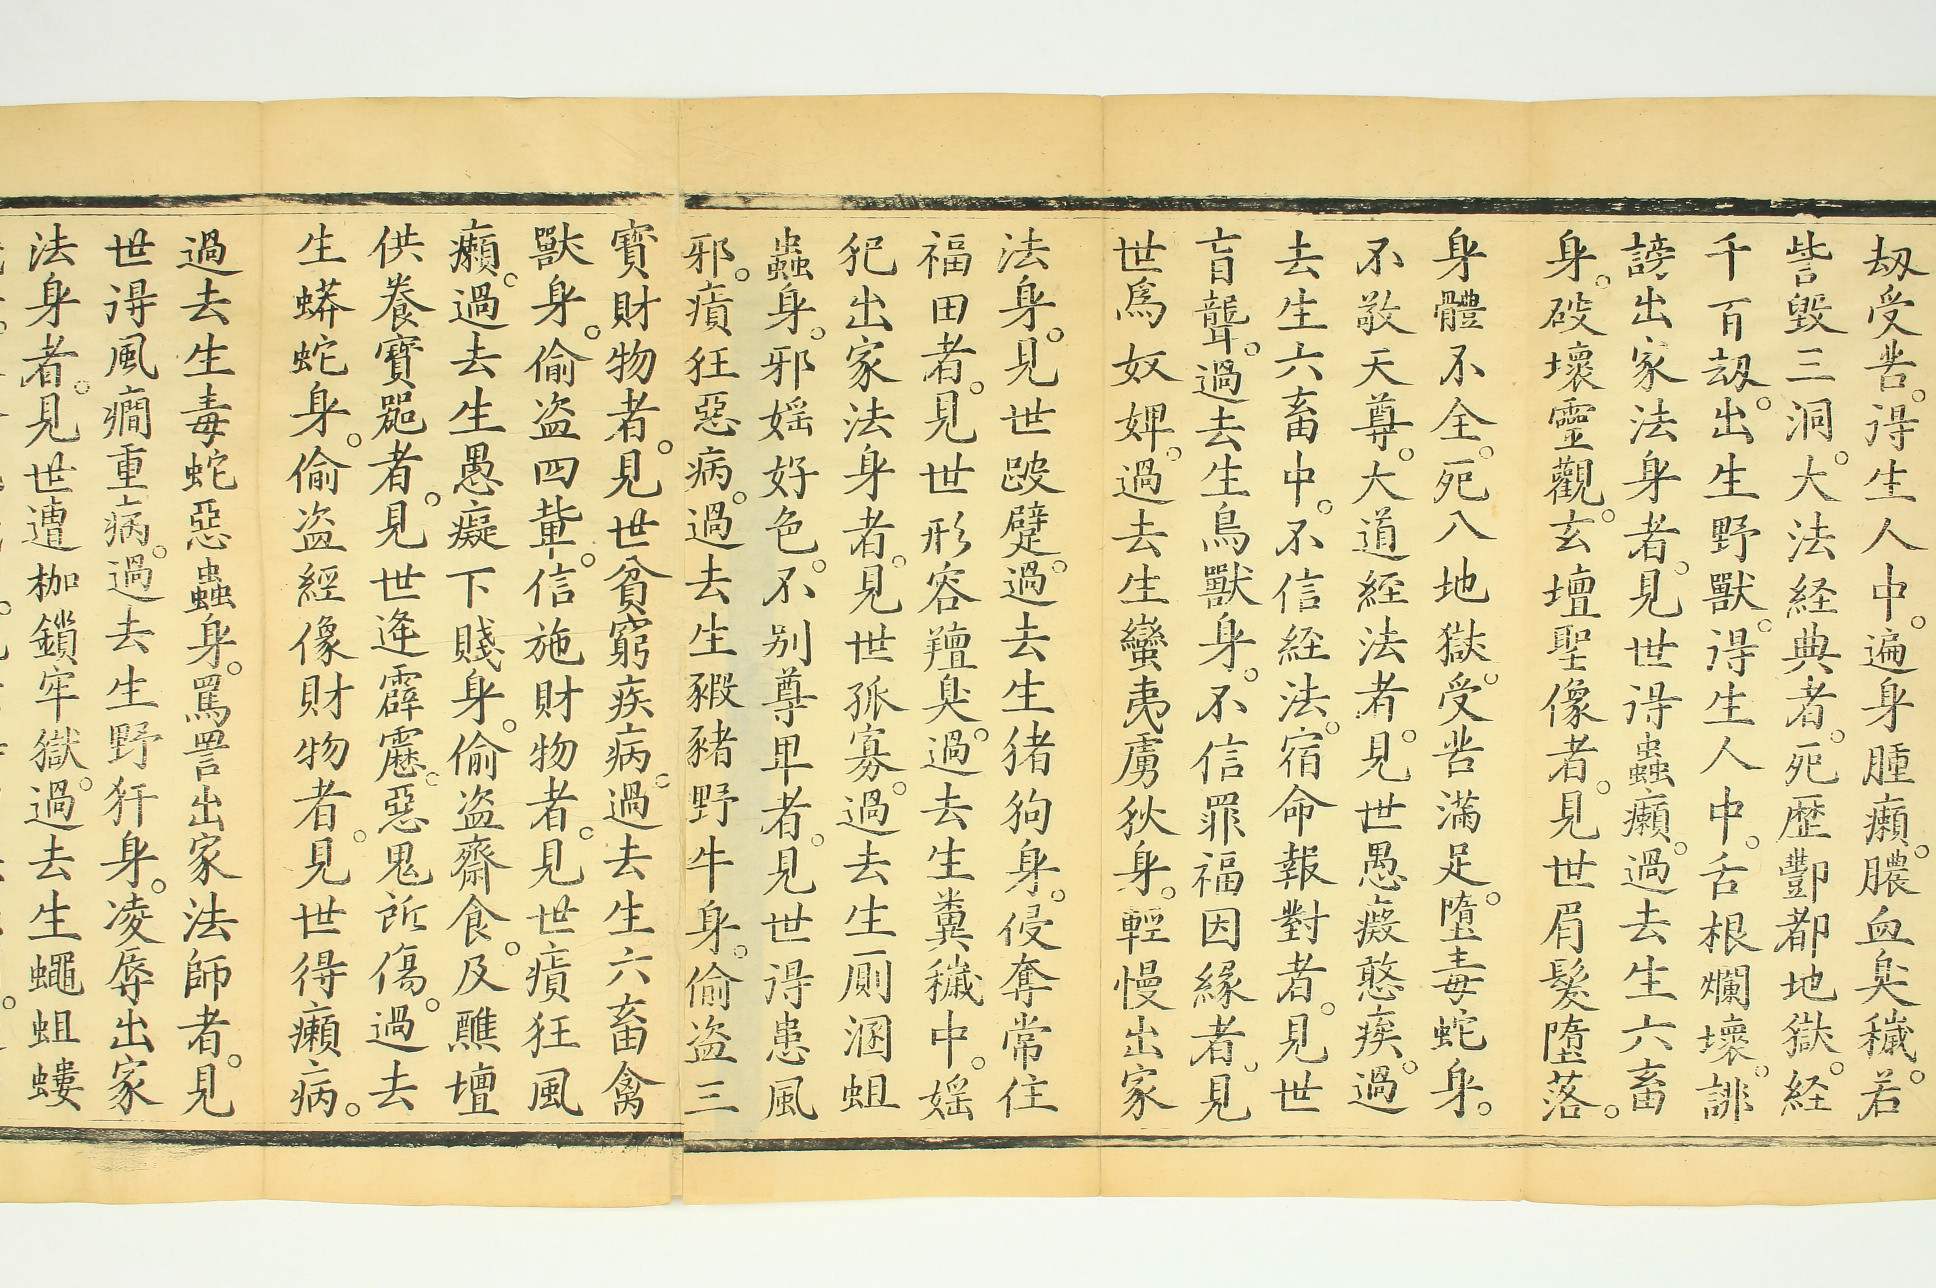 劫受苦。得生人中。遍身腫癩。膿血臭穢。若
訾毀三洞。大法経典者。死歷酆都地獄。経
千百劫。出生野獸。得生人中。舌根爛壞。誹
謗出家法身者。見世得蟲癩。過去生六畜
身。破壞靈觀。玄壇聖像者。見世眉髮墮落。
身體不全。死八地獄。受苦滿足。墮毒蛇身。
不敬天尊。大道経法者。見世愚癡憨疾。過
去生六畜中。不信経法。宿命報對者。見世
盲聾。過去生鳥獸身。不信罪福因緣者。見
世爲奴婢。過去生蠻夷虜狄身。輕慢出家
法身。見世跛躄。過去生猪狗身。侵奪常住
福田者。見世形容羶臭。過去生糞穢中。婬
犯出家法身者。見世孤寡。過去生厠溷蛆
蟲身。邪婬好色。不别尊卑者。見世得患風
邪。癀狂惡病。過去生豭豬野牛身。偷盜三
寳財物者。見世貧窮疾病。過去生六畜禽
獸身。偷盗四輩。信施財物者。見世癀狂風
癩。過去生愚癡下賤身。偷盗齋食。及醮壇
供養寳噐者。見世逢霹靂惡鬼所傷。過去
生蟒蛇身。偷盗經像財物者。見世得癩病。
過去生毒蛇惡蟲身。罵詈出家法師者。見
世得風癇重病。過去生野犴身。凌辱出家
法身者。見世遭枷鎖牢獄。過去生蠅蛆螻